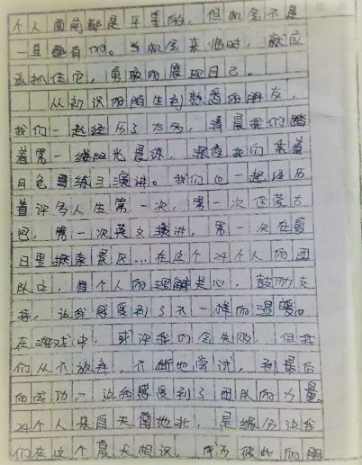 个人面前都是平等的，但机会不是
一直都有的。当机会来临时，就应
该抓住它，勇敢的展现自己。
从初识的陌生到熟悉的朋友，
我们一起经历了太多，清晨我们踏
着第一缕阳光晨读，深夜我们乘着
月色练习演讲。我们也一起经历
着许多人生第一次，第一次
包，第一次英文演讲，第一次在夏
日里探索景区…在这个24个人的团
队中，每个人的理解关心，鼓励支
持，让我感受到了不一样的温暖。
在游戏中，或许我们会失败，但我
们从不放弃，不断地尝试，到最后
的成功，让我感受到了团队的力量。
24个人来自天南地北，是缘分让我
们在这个夏天相识，成为彼此的朋